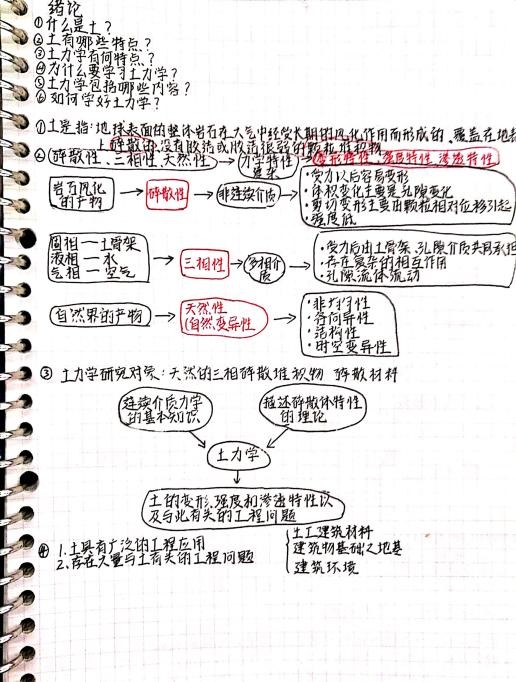 绪论
①什么是土?
②土有哪些特点?
③土力学有何特点?
④为什么要学习土力学?
⑤土力学包括哪些内容?
⑥如何学好土力学?
①土是指:地球表面的整体岩石在大气中经受长期的风化作用而形成的、覆盖在地表
上碎散的,没有胶结或胶结很弱的颗粒堆积物
②碎散性、三相性、天然性 力学特性复杂 变形特性、强度特性、渗透特性
岩石风化的产物 碎散性 非连续介质
·受力以后容易变形
·体积变化主要是孔隙变化
·剪切变形主要由颗粒相对位移引起
·强度低
固相—土骨架
液相—水
气相—空气
三相性 多相介质
·受力后由土骨架、孔隙介质共同承担
·存在复杂的相互作用
·孔隙流体流动
自然界的产物 天然性
(自然变异性
·非均匀性
·各向异性
·结构性
·时空变异性
③ 土力学研究对象:天然的三相碎散堆积物 碎散材料
连续介质力学的基本知识 描述碎散体特性的理论
土力学
土的变形、强度和渗透特性以
及与此有关的工程问题
④ 1.土具有广泛的工程应用
2.存在大量与土有关的工程问题
土工建筑材料
建筑物基础之地基
建筑环境